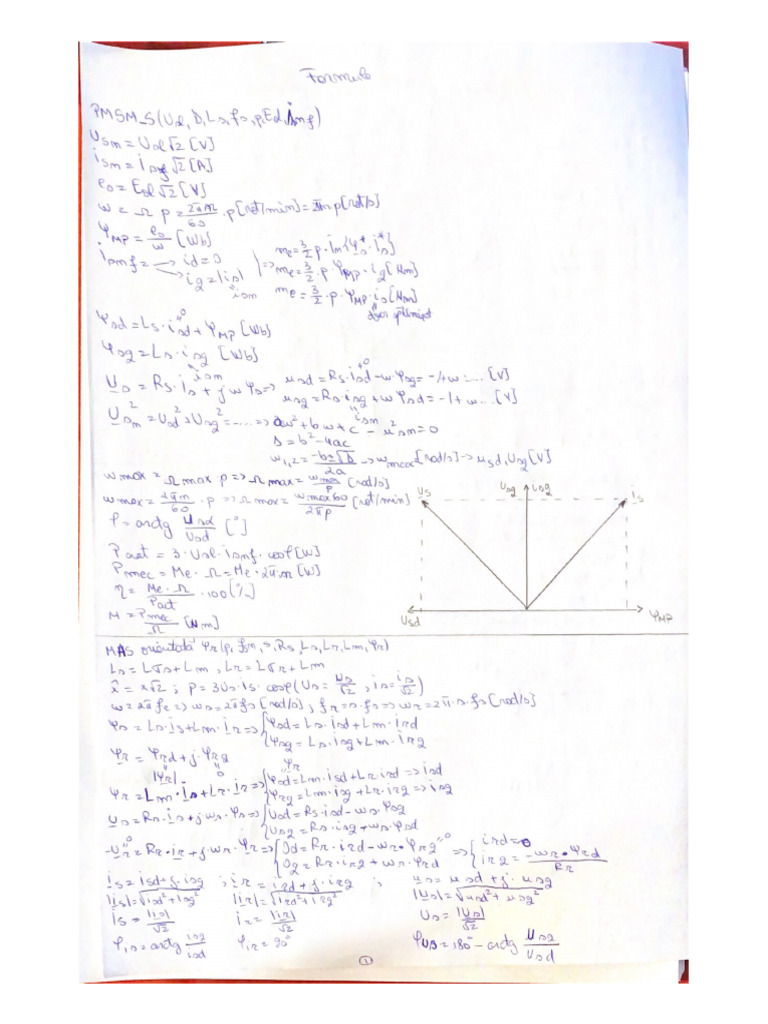 Formule
PMSM_S(Usl, D, Ls, fs, p, Esl, isnf)
Usm = Usl√2 [V]
ism = isnf√2 [A]
e0 = Esl√2 [V]
w = Ω p = 2πn/60 · p [rot/min] = 2πn p [rot/s]
ΨMP = e0/w [Wb]
isnf = → id = 0
→ iq = |is|
ism
=> me = 3/2 p · Im{Ψs* · is*}
me = 3/2 · p · ΨMP · iq [Nm]
me = 3/2 · p · ΨMP · is [Nm]
Ψsd = Ls · isd + ΨMP [Wb]
Ψsq = Ls · isq [Wb]
ism
Us = Rs · is + jwΨs => usd = Rs · isd - wΨsq = -14w.... [V]
usq = Rs isq + wΨsd = -1 + w.... [V]
Usm² = Usd² + Usq² = ..... => aw² + bw + c - usm² = 0
Δ = b² - 4ac
w1,2 = -b±√Δ/2a → wmax [rad/s] → usd, usq [V]
wmax = Ωmax p => Ωmax = wmax/p [rad/s]
wmax = 2πn/60 · p => Ωmax = wmax60/2πp [rot/min]
φ = arctg usq/usd [°]
Pact = 3 · Usl · isnf · cosφ [W]
Pmec = Me · Ω = Me · 2πn [W]
η = Me · Ω/Pact · 100 [%]
M = Pmec/Ω [Nm]
Us Usq isq is
Usd ΨMP
MAS orientată Ψr (p, fsn, s, Rs, Ls, Lr, Lm, Ψr)
Ls = Lσs + Lm , Lr = Lσr + Lm
x̂ = x√2 ; p = 3Us · is · cosφ (Us = Us/√2 , is = is/√2)
w = 2πf => ws = 2πfs [rad/s] , fr = s · fs => wr = 2π · s · fs [rad/s]
Ψs = Ls · is + Lm · ir => {Ψsd = Ls · isd + Lm · ird
Ψsq = Ls · isq + Lm · irq
Ψr = Ψrd + j · Ψrq
|Ψr| 0 Ψr
Ψr = Lm · is + Lr · ir => {Ψrd = Lm · isd + Lr · ird => isd
Ψrq = Lm · isq + Lr · irq => isq
us = Rs · is + jws · Ψs => {Usd = Rs · isd - ws · Ψsq
Usq = Rs · isq + ws · Ψsd
-Ur = Rr · ir + j · wr · Ψr => {0d = Rr · ird - wr · Ψrq => {ird = 0
0q = Rr · irq + wr · Ψrd irq = -wr · Ψrd/Rr
is = isd + j · isq ; ir = ird + j · irq ; us = usd + j · usq
|is| = √isd² + isq² |ir| = √ird² + irq² |Us| = √usd² + usq²
is = |is|/√2 ir = |ir|/√2 Us = |Us|/√2
φis = arctg isq/isd φir = 90° φus = 180° - arctg usq/usd
1